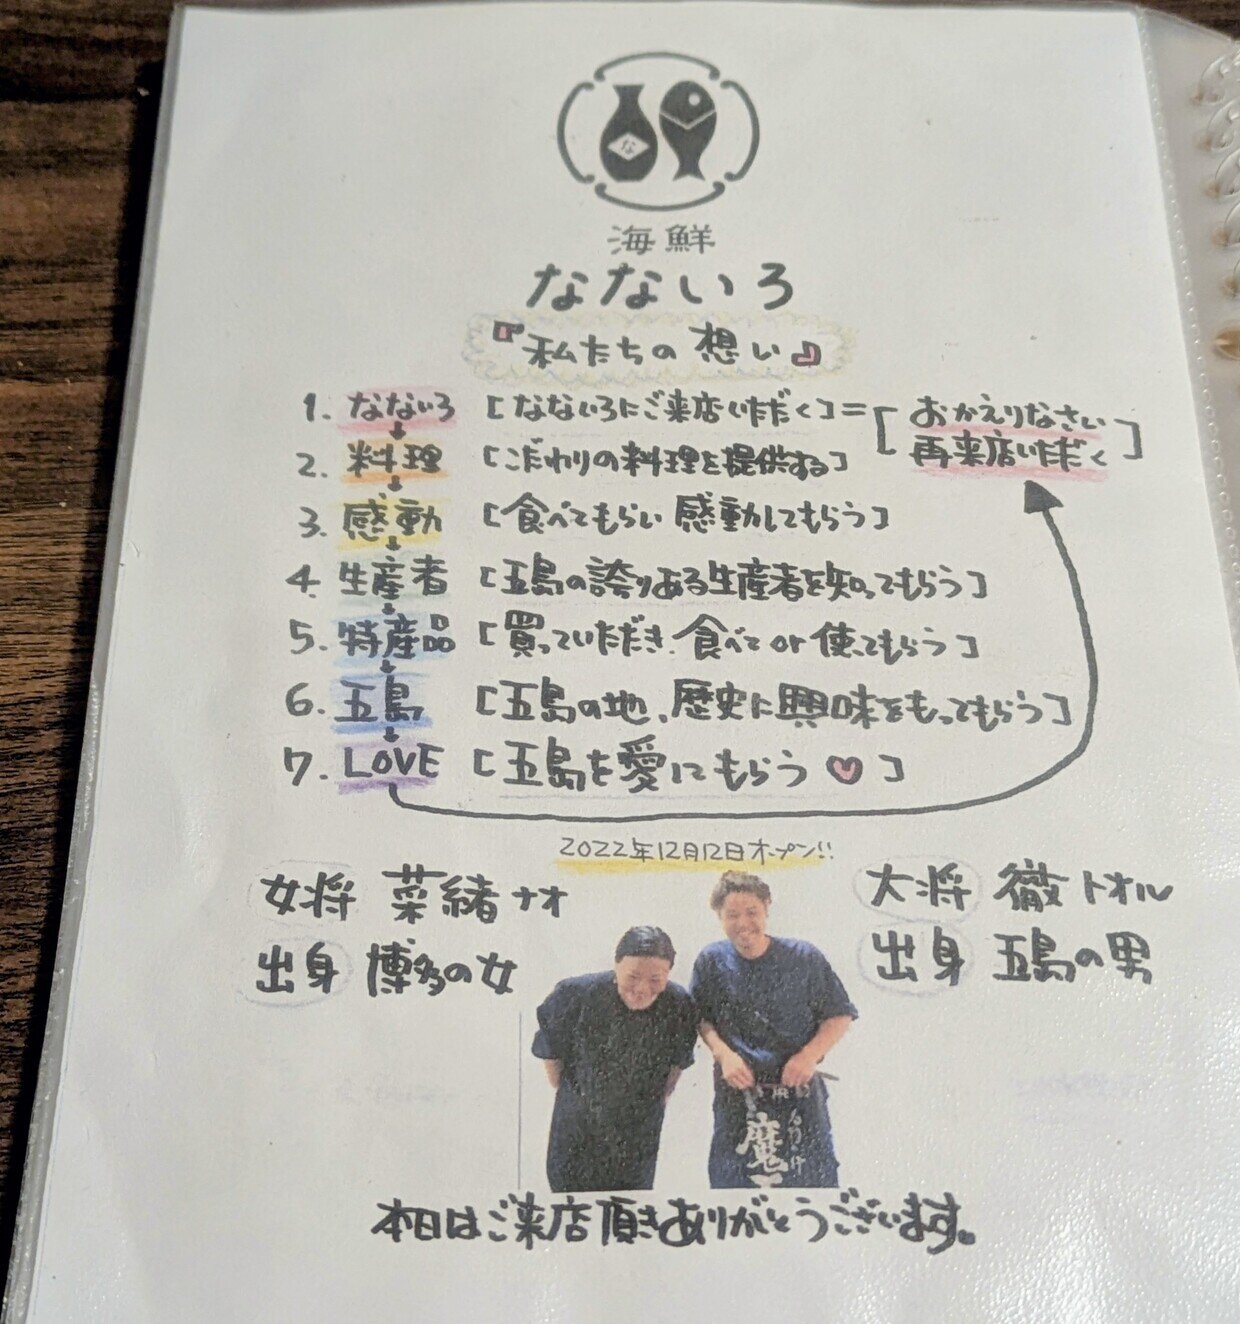 な
海鮮
なないろ
『私たちの想い』
1. なないろ [なないろにご来店いただく] = [おかえりなさい
再来店いただく]
2. 料理 [こだわりの料理を提供する]
3. 感動 [食べてもらい感動してもらう]
4. 生産者 [五島の誇りある生産者を知ってもらう]
5. 特産品 [買っていただき、食べて or 使ってもらう]
6. 五島 [五島の地、歴史に興味をもってもらう]
7. LOVE [五島を愛にもらう♡]
2022年12月12日オープン!!
女将 菜緒 ナオ
出身 博多の女
大将 徹 トオル
出身 五島の男
魔
本日はご来店頂きありがとうございます。